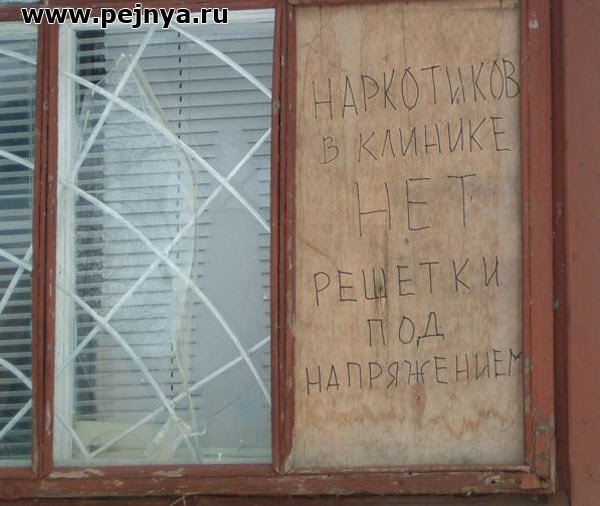 www.pejnya.ru
НАРКОТИКОВ
В КЛИНИКЕ
НЕТ
РЕШЕТКИ
ПОД
НАПРЯЖЕНИЕМ